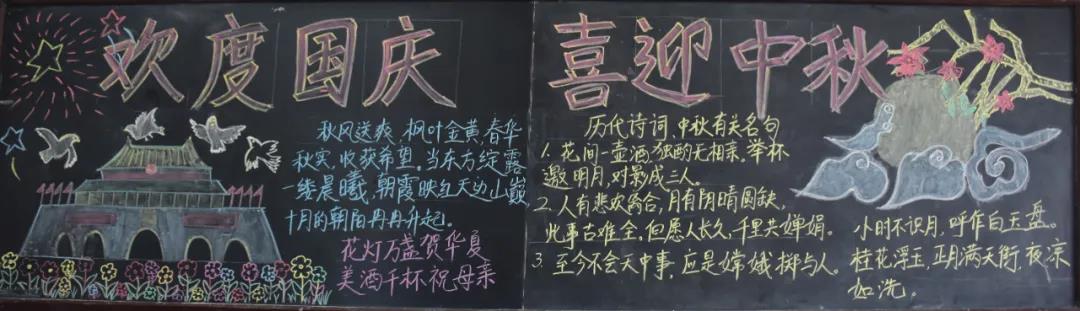 欢度国庆
秋风送爽,枫叶金黄,春华
秋实,收获希望,当东方绽露
一缕晨曦,朝霞映红天边山巅
十月的朝阳冉冉升起。
花灯万盏贺华夏
美酒千杯祝母亲
喜迎中秋
历代诗词,中秋有关名句
1. 花间一壶酒,独酌无相亲,举杯
邀明月,对影成三人。
2. 人有悲欢离合,月有阴晴圆缺,
此事古难全,但愿人长久,千里共婵娟。
3. 至今不会天中事,应是嫦娥掷与人。
小时不识月,呼作白玉盘。
桂花浮玉,正月满天街,夜凉
如洗。